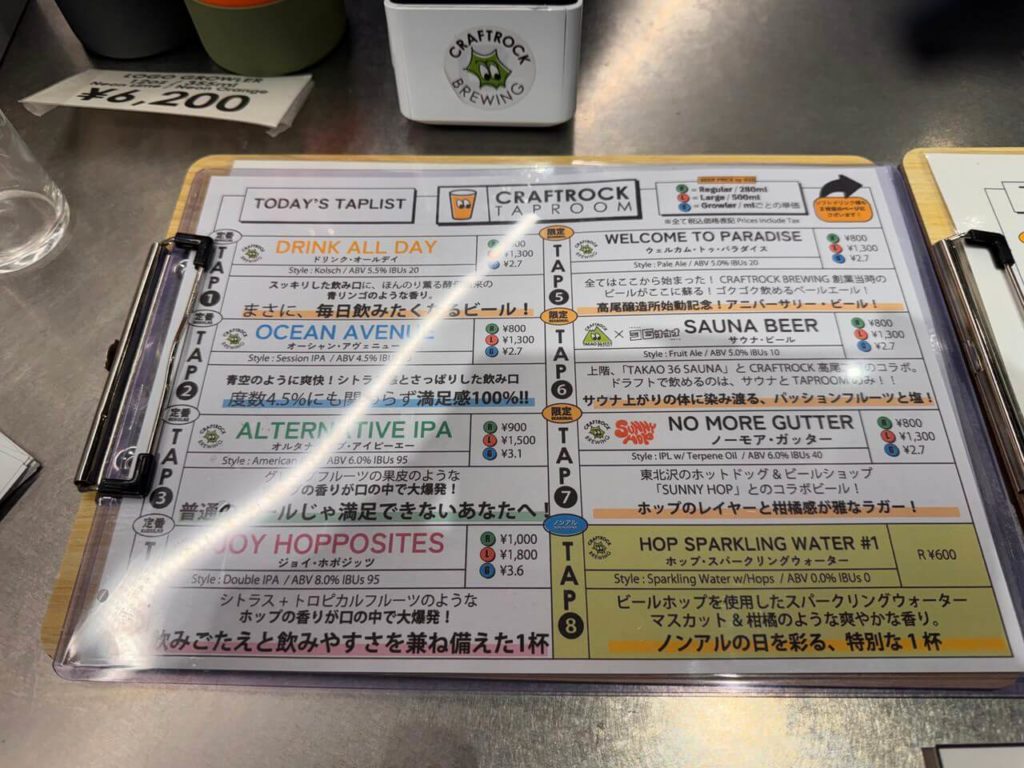 LOGO GROWLER
¥6,200
CRAFTROCK
BREWING
TODAY'S TAPLIST
CRAFTROCK
TAPROOM
R = Regular / 280ml
L = Large / 500ml
G = Growler / mlごとの単価
※全て税込価格表記 Prices Include Tax
定番
TAP 1
DRINK ALL DAY
ドリンク・オールデイ
¥1,300
¥2.7
Style : Kolsch / ABV 5.5% IBUs 20
スッキリした飲み口に、ほんのり薫る酵母
の
青リンゴのような香り。
まさに、毎日飲みたくなるビール！
定番
TAP 2
OCEAN AVENUE
オーシャン・アヴェニュー
R ¥800
L ¥1,300
G ¥2.7
Style : Session IPA / ABV 4.5% IBUs
青空のように爽快！シトラス
とさっぱりした飲み口
度数4.5%にも関わらず満足感100%!!
定番
TAP 3
ALTERNATIVE IPA
オルタナ
・アイピーエー
R ¥900
L ¥1,500
G ¥3.1
Style : American
ABV 6.0% IBUs 95
フルーツの果皮のような
ホップの香りが口の中で大爆発！
普通のビールじゃ満足できないあなたへ！
定番
JOY HOPPOSITES
ジョイ・ホポジッツ
R ¥1,000
L ¥1,800
G ¥3.6
Style : Double IPA / ABV 8.0% IBUs 95
シトラス + トロピカルフルーツのような
ホップの香りが口の中で大爆発！
飲みごたえと飲みやすさを兼ね備えた1杯
限定
TAP 5
WELCOME TO PARADISE
ウェルカム・トゥ・パラダイス
R ¥800
L ¥1,300
G ¥2.7
Style : Pale Ale / ABV 5.0% IBUs 20
全てはここから始まった！ CRAFTROCK BREWING 創業当時の
ビールがここに蘇る！ゴクゴク飲めるペールエール！
高尾醸造所始動記念！アニバーサリー・ビール！
限定
TAP 6
×
SAUNA BEER
サウナ・ビール
R ¥800
L ¥1,300
G ¥2.7
Style : Fruit Ale / ABV 5.0% IBUs 10
上階、「TAKAO 36 SAUNA」と CRAFTROCK 高尾
のコラボ。
ドラフトで飲めるのは、サウナと TAPROOM のみ！！
サウナ上がりの体に染み渡る、パッションフルーツと塩！
限定
TAP 7
SUNNY HOP
NO MORE GUTTER
ノーモア・ガッター
R ¥800
L ¥1,300
G ¥2.7
Style : IPL w/ Terpene Oil / ABV 6.0% IBUs 40
東北沢のホットドッグ＆ビールショップ
「SUNNY HOP」とのコラボビール！
ホップのレイヤーと柑橘感が雅なラガー！
ノンアル
TAP 8
HOP SPARKLING WATER #1
ホップ・スパークリングウォーター
R ¥600
Style : Sparkling Water w/Hops / ABV 0.0% IBUs 0
ビールホップを使用したスパークリングウォーター
マスカット＆柑橘のような爽やかな香り。
ノンアルの日を彩る、特別な１杯